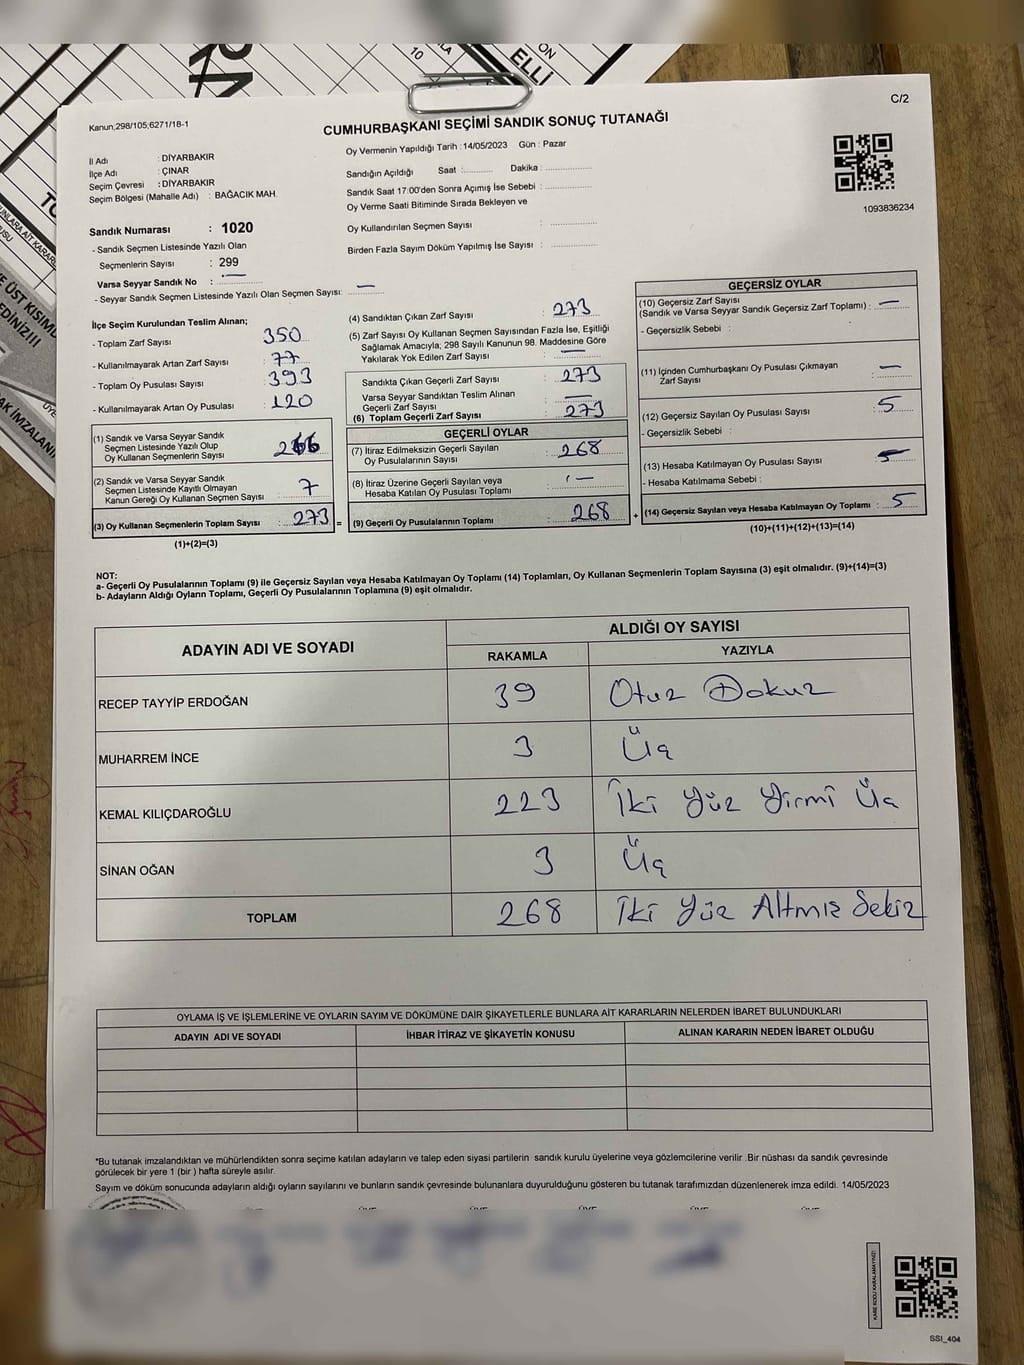 10
ELLİ
ON
C/2
Kanun,298/105;6271/18-1
CUMHURBAŞKANI SEÇİMİ SANDIK SONUÇ TUTANAĞI
İl Adı : DİYARBAKIR
İlçe Adı : ÇINAR
Seçim Çevresi : DİYARBAKIR
Seçim Bölgesi (Mahalle Adı) : BAĞACIK MAH.
Oy Vermenin Yapıldığı Tarih : 14/05/2023 Gün : Pazar
Sandığın Açıldığı Saat : Dakika :
Sandık Saat 17:00'den Sonra Açımış İse Sebebi :
Oy Verme Saati Bitiminde Sırada Bekleyen ve
Oy Kullandırılan Seçmen Sayısı :
Birden Fazla Sayım Döküm Yapılmış İse Sayısı :
1093836234
Sandık Numarası : 1020
- Sandık Seçmen Listesinde Yazılı Olan
Seçmenlerin Sayısı : 299
Varsa Seyyar Sandık No : —
- Seyyar Sandık Seçmen Listesinde Yazılı Olan Seçmen Sayısı: —
İlçe Seçim Kurulundan Teslim Alınan;
- Toplam Zarf Sayısı : 350
- Kullanılmayarak Artan Zarf Sayısı : 77
- Toplam Oy Pusulası Sayısı : 393
- Kullanılmayarak Artan Oy Pusulası : 120
(1) Sandık ve Varsa Seyyar Sandık
Seçmen Listesinde Yazılı Olup
Oy Kullanan Seçmenlerin Sayısı : 266
(2) Sandık ve Varsa Seyyar Sandık
Seçmen Listesinde Kayıtlı Olmayan
Kanun Gereği Oy Kullanan Seçmen Sayısı : 7
(3) Oy Kullanan Seçmenlerin Toplam Sayısı : 273 =
(1)+(2)=(3)
(4) Sandıktan Çıkan Zarf Sayısı : 273
(5) Zarf Sayısı Oy Kullanan Seçmen Sayısından Fazla İse, Eşitliği
Sağlamak Amacıyla; 298 Sayılı Kanunun 98. Maddesine Göre
Yakılarak Yok Edilen Zarf Sayısı : —
Sandıkta Çıkan Geçerli Zarf Sayısı : 273
Varsa Seyyar Sandıktan Teslim Alınan
Geçerli Zarf Sayısı : —
(6) Toplam Geçerli Zarf Sayısı : 273
GEÇERLİ OYLAR
(7) İtiraz Edilmeksizin Geçerli Sayılan
Oy Pusulalarının Sayısı : 268
(8) İtiraz Üzerine Geçerli Sayılan veya
Hesaba Katılan Oy Pusulası Toplamı : —
(9) Geçerli Oy Pusulalarının Toplamı : 268 +
GEÇERSİZ OYLAR
(10) Geçersiz Zarf Sayısı
(Sandık ve Varsa Seyyar Sandık Geçersiz Zarf Toplamı) : —
- Geçersizlik Sebebi :
(11) İçinden Cumhurbaşkanı Oy Pusulası Çıkmayan
Zarf Sayısı : —
(12) Geçersiz Sayılan Oy Pusulası Sayısı : 5
- Geçersizlik Sebebi :
(13) Hesaba Katılmayan Oy Pusulası Sayısı :
- Hesaba Katılmama Sebebi :
(14) Geçersiz Sayılan veya Hesaba Katılmayan Oy Toplamı : 5
(10)+(11)+(12)+(13)=(14)
NOT:
a- Geçerli Oy Pusulalarının Toplamı (9) ile Geçersiz Sayılan veya Hesaba Katılmayan Oy Toplamı (14) Toplamları, Oy Kullanan Seçmenlerin Toplam Sayısına (3) eşit olmalıdır. (9)+(14)=(3)
b- Adayların Aldığı Oyların Toplamı, Geçerli Oy Pusulalarının Toplamına (9) eşit olmalıdır.
ADAYIN ADI VE SOYADI
ALDIĞI OY SAYISI
RAKAMLA YAZIYLA
RECEP TAYYİP ERDOĞAN 39 Otuz Dokuz
MUHARREM İNCE 3 Üç
KEMAL KILIÇDAROĞLU 223 İki Yüz Yirmi Üç
SİNAN OĞAN 3 Üç
TOPLAM 268 İki Yüz Altmış Sekiz
OYLAMA İŞ VE İŞLEMLERİNE VE OYLARIN SAYIM VE DÖKÜMÜNE DAİR ŞİKAYETLERLE BUNLARA AİT KARARLARIN NELERDEN İBARET BULUNDUKLARI
ADAYIN ADI VE SOYADI İHBAR İTİRAZ VE ŞİKAYETİN KONUSU ALINAN KARARIN NEDEN İBARET OLDUĞU
*Bu tutanak imzalandıktan ve mühürlendikten sonra seçime katılan adayların ve talep eden siyasi partilerin sandık kurulu üyelerine veya gözlemcilerine verilir .Bir nüshası da sandık çevresinde
görülecek bir yere 1 (bir ) hafta süreyle asılır.
Sayım ve döküm sonucunda adayların aldığı oyların sayılarını ve bunların sandık çevresinde bulunanlara duyurulduğunu gösteren bu tutanak tarafımızdan düzenlenerek imza edildi. 14/05/2023
KARE KODU KARALAMAYINIZ!
SSI_404